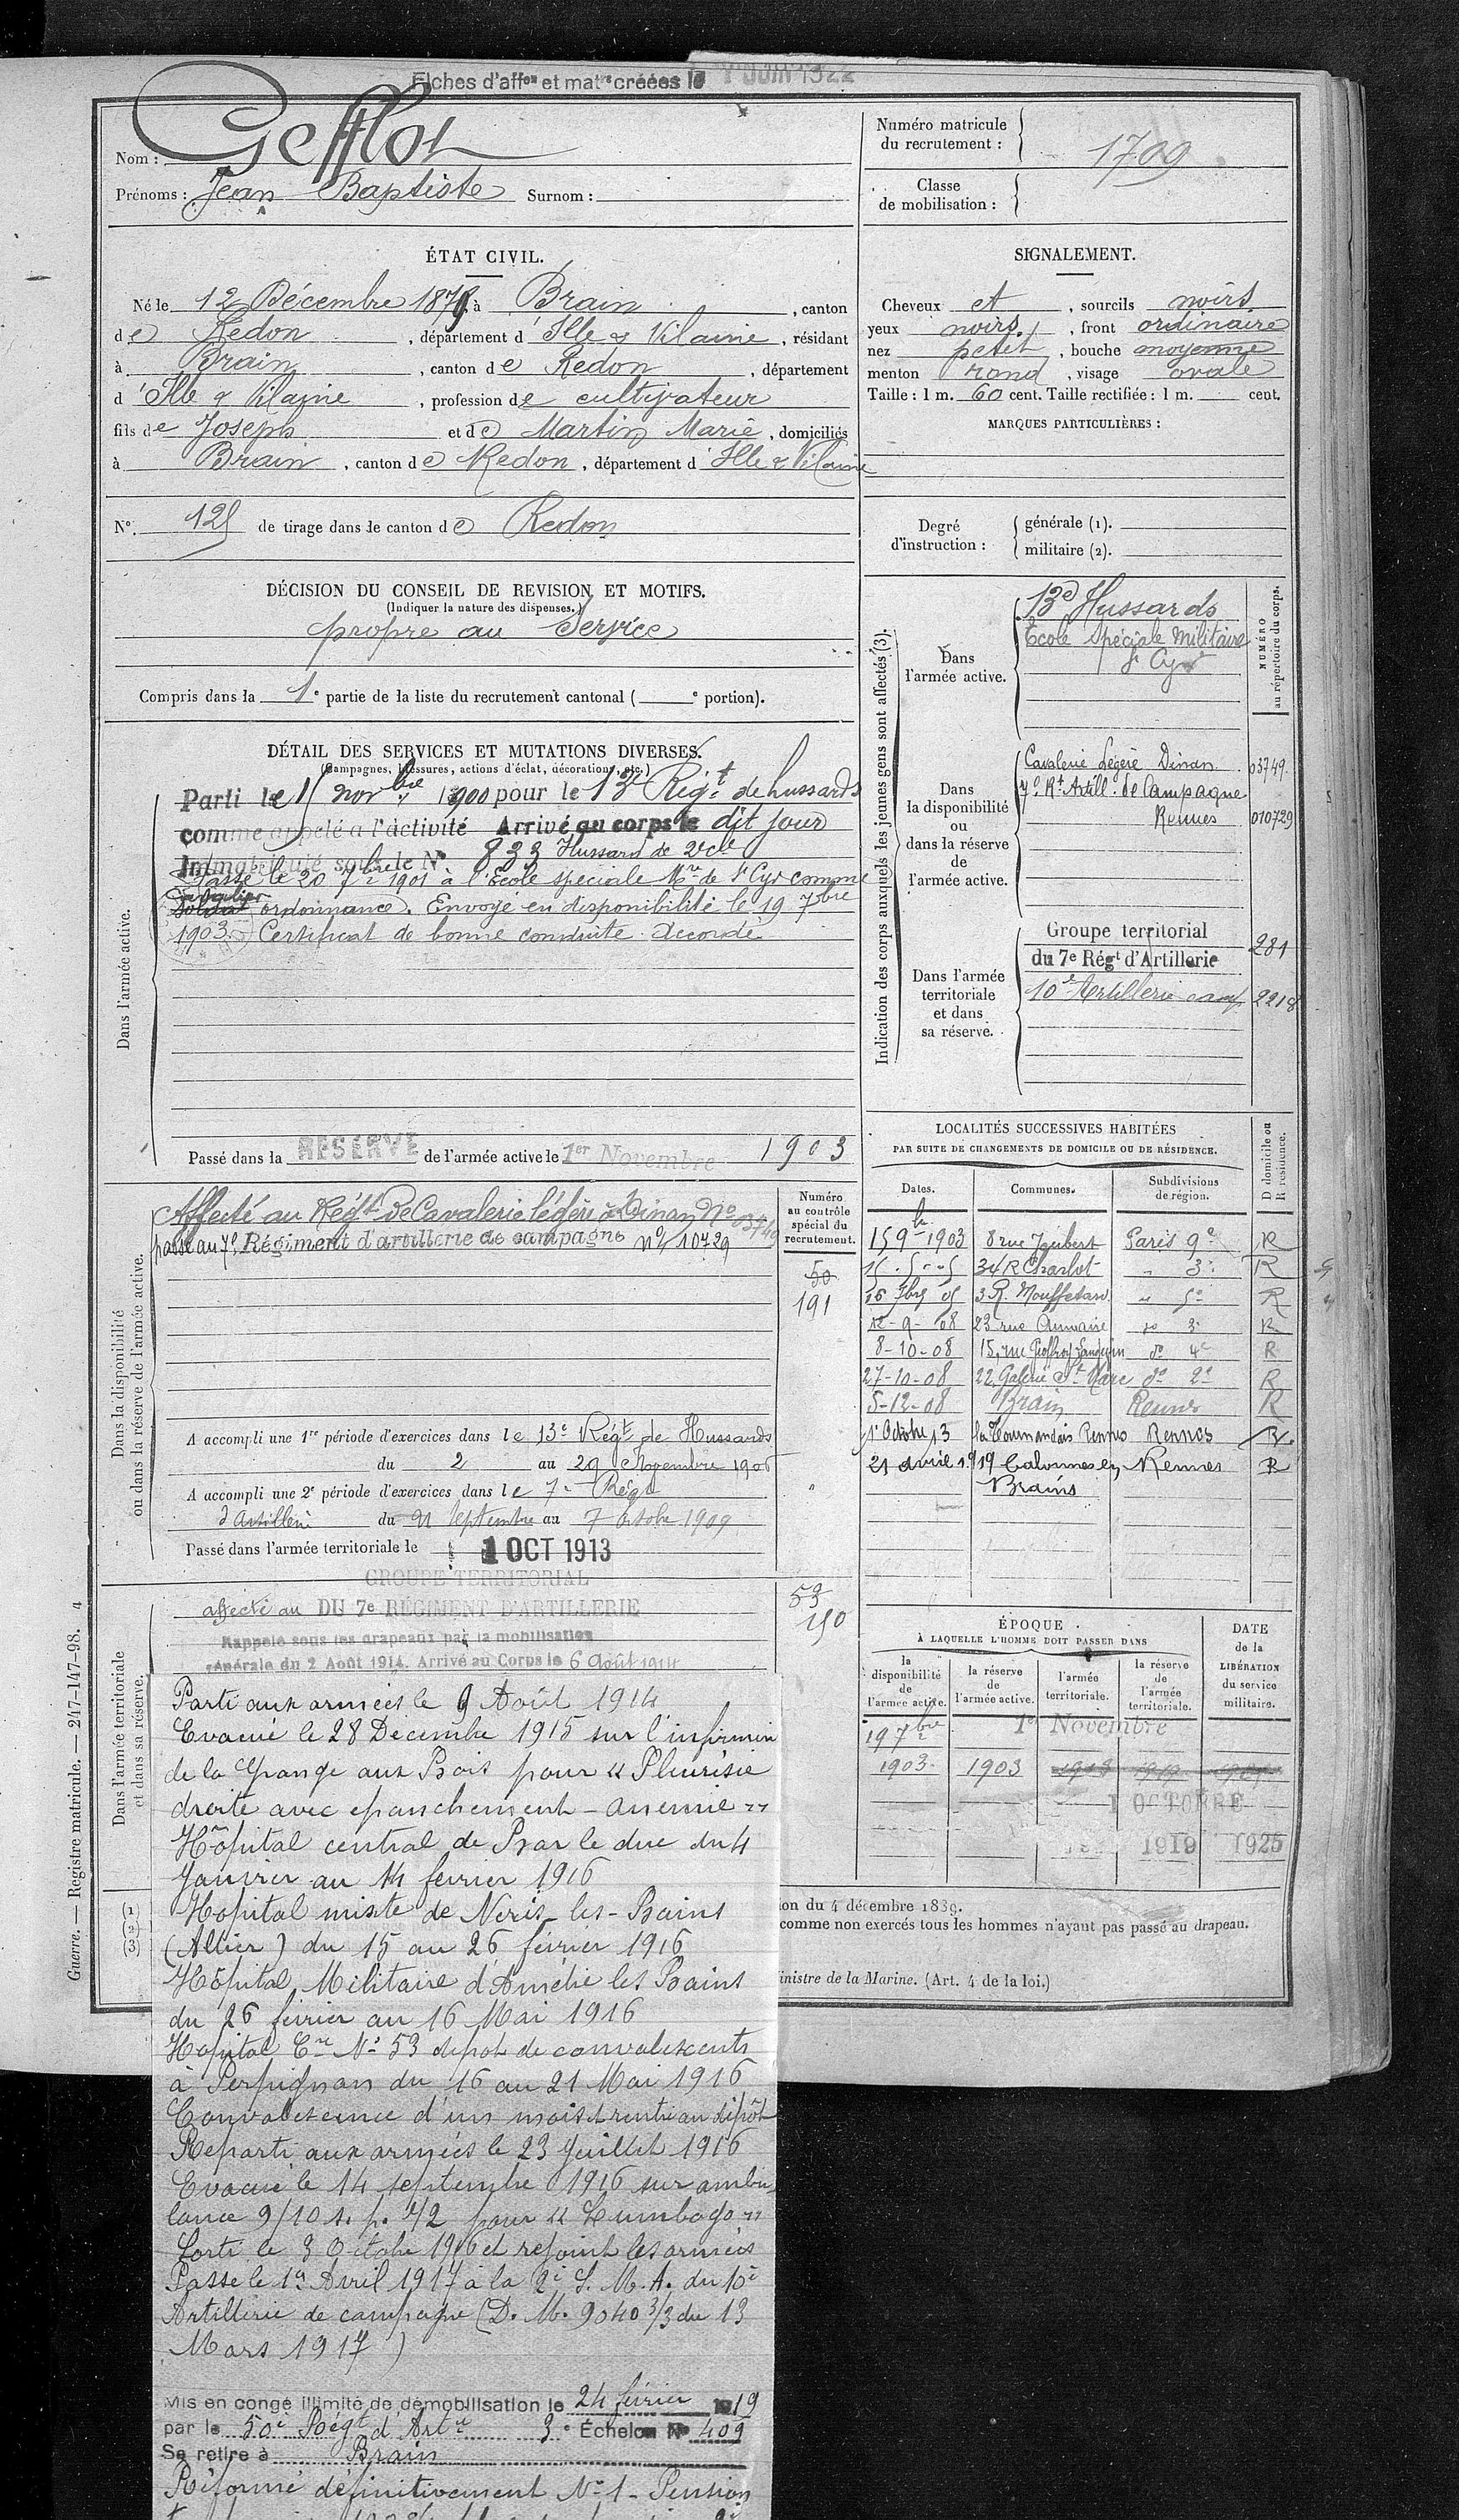 Fiches d'affon et matle créées le 1 JUIN 1922
Nom : Gefflot
Prénoms : Jean Baptiste Surnom :
Numéro matricule du recrutement : 1709
Classe de mobilisation :
ÉTAT CIVIL.
Né le 12 Décembre 1879 à Brain, canton
de Redon, département d'Ille & Vilaine, résidant
à Brain, canton de Redon, département
d'Ille & Vilaine, profession de cultivateur
fils de Joseph et de Martin Marie, domiciliés
à Brain, canton de Redon, département d'Ille & Vilaine
N°. 125 de tirage dans le canton de Redon
SIGNALEMENT.
Cheveux et, sourcils noirs
yeux noirs, front ordinaire
nez petit, bouche moyenne
menton rond, visage ovale
Taille : 1 m. 60 cent. Taille rectifiée : 1 m. cent.
MARQUES PARTICULIÈRES :
Degré d'instruction : générale (1).
militaire (2).
DÉCISION DU CONSEIL DE REVISION ET MOTIFS.
(Indiquer la nature des dispenses.)
propre au Service
Compris dans la 1e partie de la liste du recrutement cantonal ( e portion).
DÉTAIL DES SERVICES ET MUTATIONS DIVERSES.
(Campagnes, blessures, actions d'éclat, décorations, etc.)
Dans l'armée active.
Parti le 15 novbre 1900 pour le 13e Régt de hussards
comme appelé à l'activité Arrivé au corps le dit jour
Immatriculé sous le N° 833 Hussard de 2e cl
Passé le 20 7bre 1901 à l'Ecole spéciale Mre de St Cyr comme
cavalier
soldat ordonnance. Envoyé en disponibilité le 19 7bre
1903. Certificat de bonne conduite Accordé
Passé dans la RESERVE de l'armée active le 1er Novembre 1903
Indication des corps auxquels les jeunes gens sont affectés (3).
NUMÉRO au répertoire du corps.
Dans l'armée active.
13e Hussards
Ecole Spéciale Militaire
St Cyr
Dans la disponibilité ou dans la réserve de l'armée active.
Cavalerie Légère Dinan 03749
7e Rt Artill. de Campagne
Rennes 010729
Dans l'armée territoriale et dans sa réserve.
Groupe territorial
du 7e Régt d'Artillerie 281
10e Artillerie camp 2218
Dans la disponibilité ou dans la réserve de l'armée active.
Numéro au contrôle spécial du recrutement.
Affecté au Régt de Cavalerie légère à Dinan No 03749
passé au 7e Régiment d'artillerie de campagne No 10729
50
191
A accompli une 1re période d'exercices dans le 13e Régt de Hussards
du 2 au 29 Novembre 1906
A accompli une 2e période d'exercices dans le 7e Régt
d'Artillerie du 21 Septembre au 7 octobre 1909
Passé dans l'armée territoriale le 1 OCT 1913
LOCALITÉS SUCCESSIVES HABITÉES
PAR SUITE DE CHANGEMENTS DE DOMICILE OU DE RÉSIDENCE.
Dates. Communes. Subdivisions de région. D domicile ou R résidence.
15 9bre 1903 8 rue Joubert Paris 9e R
15.5-05 34 R Charlot " 3e R
16 7bre 05 3 R. Mouffetard " 5e R
12-9-08 23 rue Aumaire do 3e R
8-10-08 15, rue Geoffroy Langevin do 4e R
27-10-08 22, Galerie St Marc do 2e R
5-12-08 Brain Rennes R
1er Octobre 13 Rennes Rennes R.
21 avril 1919 Rennes R
Brains
Dans l'armée territoriale et dans sa réserve.
affecté au GROUPE TERRITORIAL DU 7e RÉGIMENT D'ARTILLERIE
Rappelé sous les drapeaux par la mobilisation
générale du 2 Août 1914. Arrivé au Corps le 6 Août 1914
59
150
ÉPOQUE
À LAQUELLE L'HOMME DOIT PASSER DANS
la disponibilité de l'armée active. la réserve de l'armée active. l'armée territoriale. la réserve de l'armée territoriale. DATE de la LIBÉRATION du service militaire.
19 7bre 1er Novembre
1903 1903
1 OCTOBRE
1919 1925
Parti aux armées le 9 Août 1914
Evacué le 28 Décembre 1915 sur l'infirmerie
de la Grange aux Bois pour "Pleurésie
droite avec épanchement - anémie"
Hôpital central de Bar le duc du 4
Janvier au 14 février 1916
Hôpital mixte de Néris-les-Bains
(Allier) du 15 au 26 février 1916
Hôpital Militaire d'Amélie les Bains
du 26 février au 16 Mai 1916
Hôpital Cre No 53 dépôt de convalescents
à Perpignan du 16 au 21 Mai 1916
Convalescence d'un mois et rentré au dépôt
Reparti aux armées le 23 Juillet 1916
Evacué le 14 septembre 1916 sur ambu-
lance 9/10 s. p. 42 pour "Lumbago"
Sorti le 3 Octobre 1916 et rejoint les armées
Passé le 1er Avril 1917 à la 2e S. M. A. du 10e
Artillerie de campagne (D. M. 9040 3/3 du 13
Mars 1917)
Mis en congé illimité de démobilisation le 24 février 1919
par le 50e Régt d'Artie 3e Échelon N° 409
Se retire à Brain
Réformé définitivement No 1 - Pension
ion du 4 décembre 1889.
comme non exercés tous les hommes n'ayant pas passé au drapeau.
inistre de la Marine. (Art. 4 de la loi.)
(1)
(2)
(3)
Guerre. — Registre matricule. — 247-147-98. 4